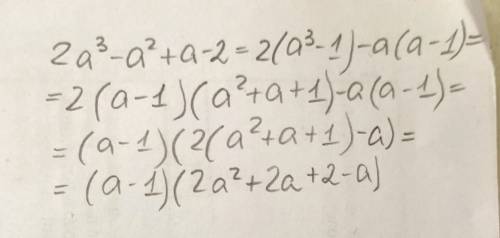 2a³-a²+a-2=2(a³-1)-a(a-1)=
=2(a-1)(a²+a+1)-a(a-1)=
=(a-1)(2(a²+a+1)-a)=
=(a-1)(2a²+2a+2-a)